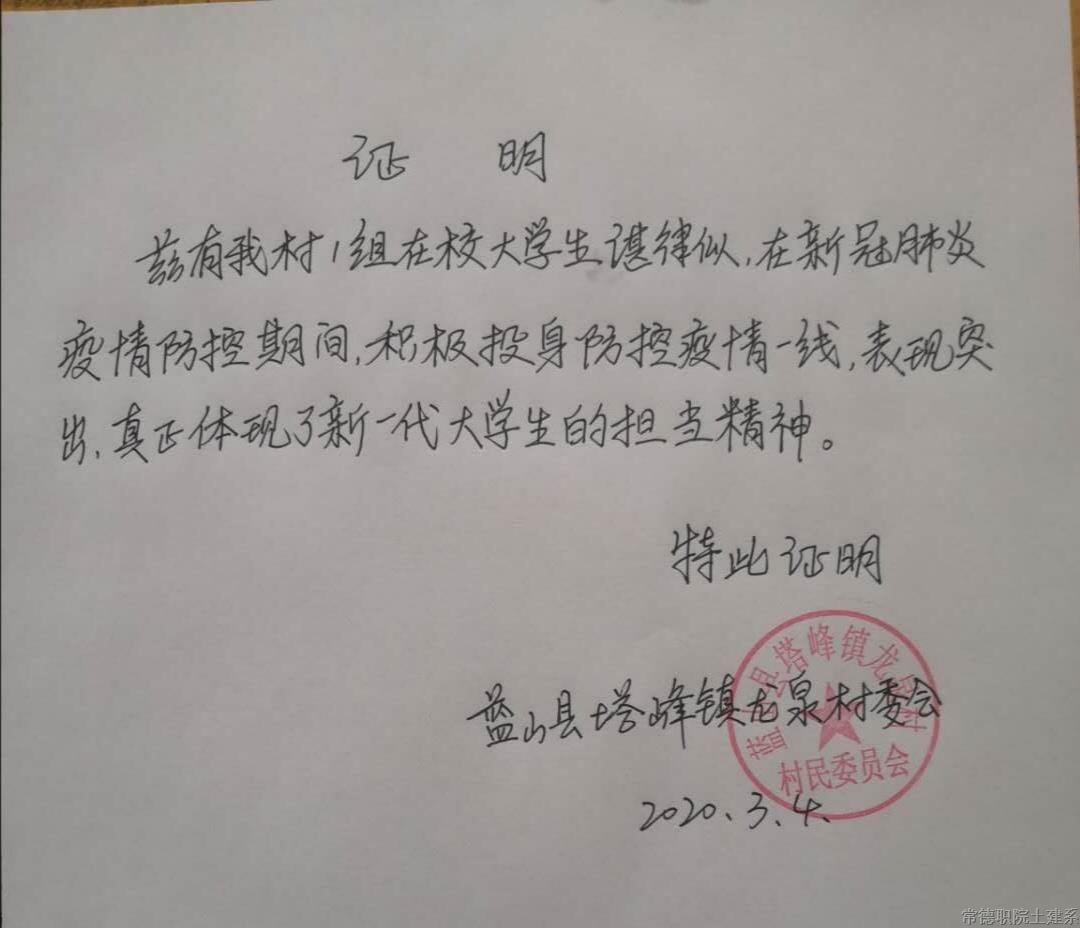 证 明
兹有我村1组在校大学生谌律似,在新冠肺炎
疫情防控期间,积极投身防控疫情一线,表现突
出,真正体现了新一代大学生的担当精神。
特此证明
蓝山县塔峰镇龙泉村委会
2020、3、4、
蓝山县塔峰镇龙泉村
村民委员会
常德职院土建系